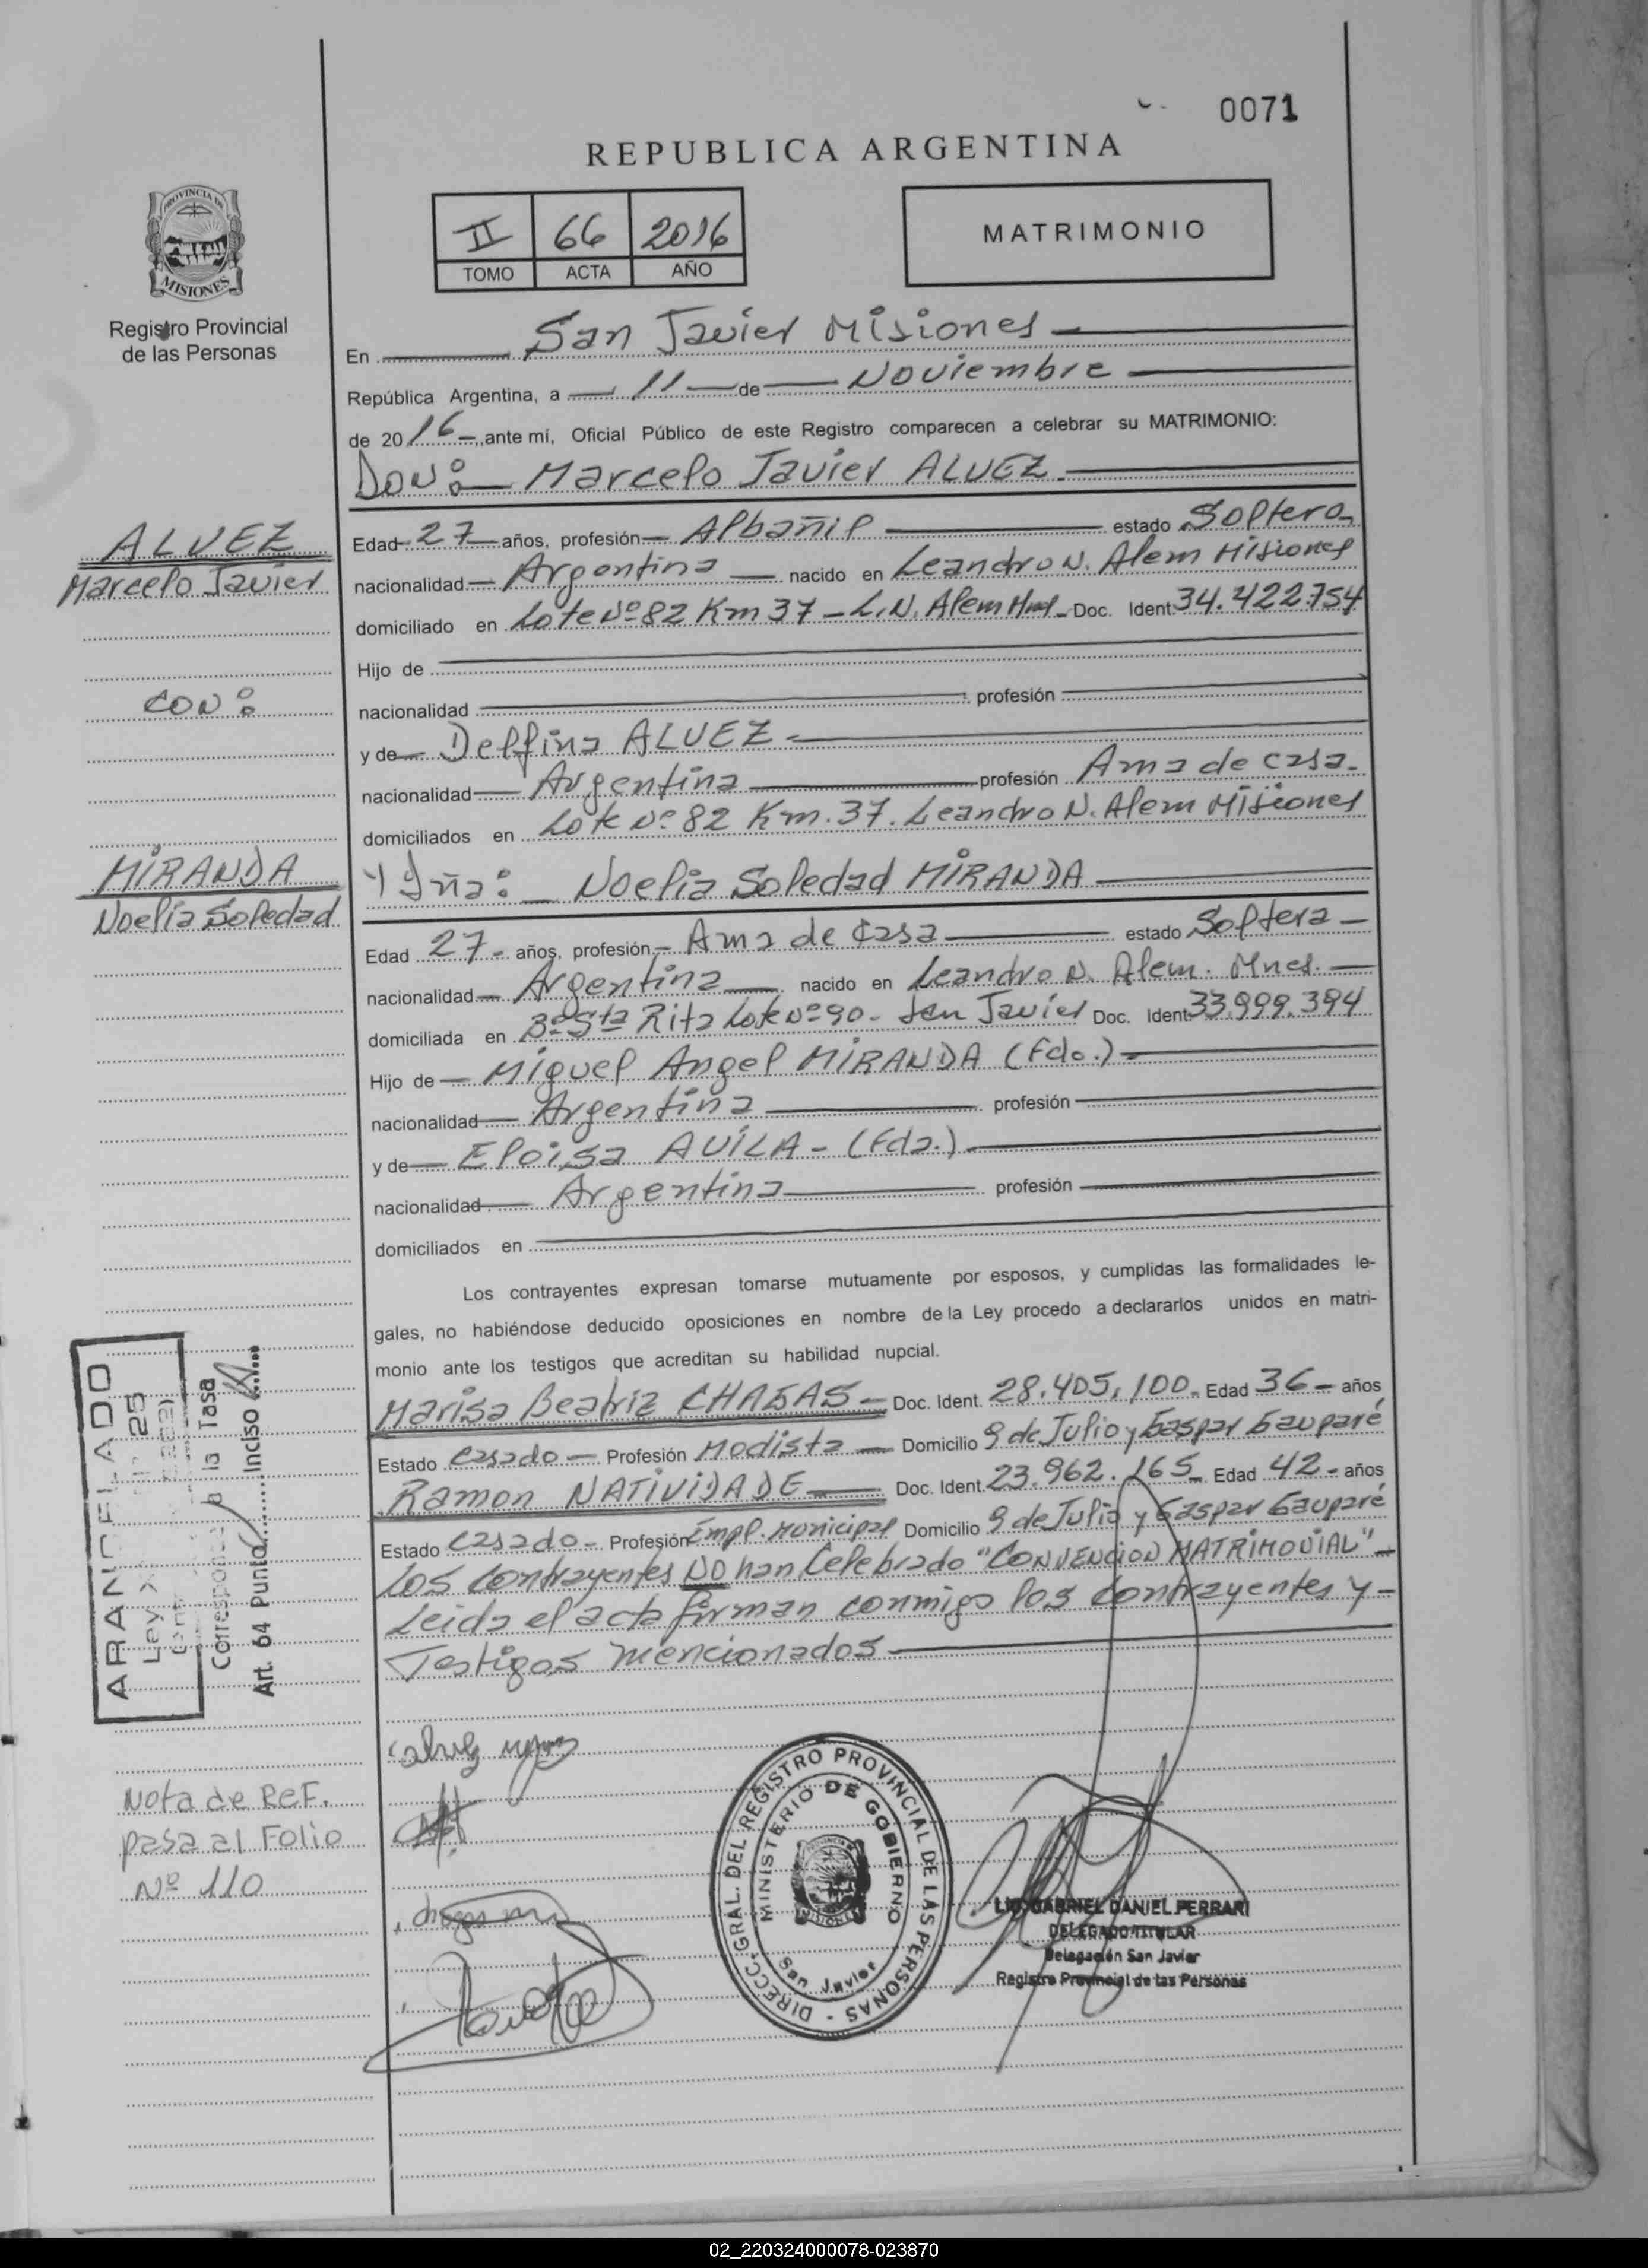 0071
REPUBLICA ARGENTINA
II 66 2016
TOMO ACTA AÑO
MATRIMONIO
PROVINCIA DE
MISIONES
Registro Provincial
de las Personas
En San Javier Misiones
República Argentina, a 11 de Noviembre
de 2016, ante mí, Oficial Público de este Registro comparecen a celebrar su MATRIMONIO:
Don: Marcelo Javier ALVEZ.
ALVEZ
Marcelo Javier
Edad 27 años, profesión Albañil estado Soltero
nacionalidad Argentina nacido en Leandro N. Alem Misiones
domiciliado en Lote Nº 82 Km 37 - L.N. Alem Mnes Doc. Ident. 34.422.754
Hijo de
CON:
nacionalidad profesión
y de Delfina ALVEZ
nacionalidad Argentina profesión Ama de casa.
domiciliados en Lote Nº 82 Km. 37. Leandro N. Alem Misiones
MIRANDA
Noelia Soledad
Y Dña: Noelia Soledad MIRANDA
Edad 27 años, profesión Ama de casa estado Soltera
nacionalidad Argentina nacido en Leandro N. Alem. Mnes.
domiciliada en Bº Sta Rita Lote Nº 90 - San Javier Doc. Ident. 33.999.394
Hijo de Miguel Angel MIRANDA (Fdo.)
nacionalidad Argentina profesión
y de Eloisa AVILA - (Fda.)
nacionalidad Argentina profesión
domiciliados en
Los contrayentes expresan tomarse mutuamente por esposos, y cumplidas las formalidades le-
gales, no habiéndose deducido oposiciones en nombre de la Ley procedo a declararlos unidos en matri-
monio ante los testigos que acreditan su habilidad nupcial.
Marisa Beatriz CHAGAS Doc. Ident. 28.405.100 Edad 36 años
Estado casado Profesión Modista Domicilio 9 de Julio y Gaspar Gauparé
Ramon NATIVIDADE Doc. Ident. 23.962.165 Edad 42 años
Estado casado Profesión Empl. Municipal Domicilio 9 de Julio y Gaspar Gauparé
Los contrayentes NO han Celebrado "CONVENCION MATRIMONIAL"
Leida el acta firman conmigo los contrayentes y
Testigos mencionados
ARANCELADO
Ley
Corresponde a la Tasa
Art. 64 Punto Inciso
Nota de REF.
pasa al Folio
Nº 110
DIRECC. GRAL. DEL REGISTRO PROVINCIAL DE LAS PERSONAS
MINISTERIO DE GOBIERNO
MISIONES
San Javier
LIC. GABRIEL DANIEL FERRARI
DELEGADO TITULAR
Delegación San Javier
Registro Provincial de las Personas
02_220324000078-023870